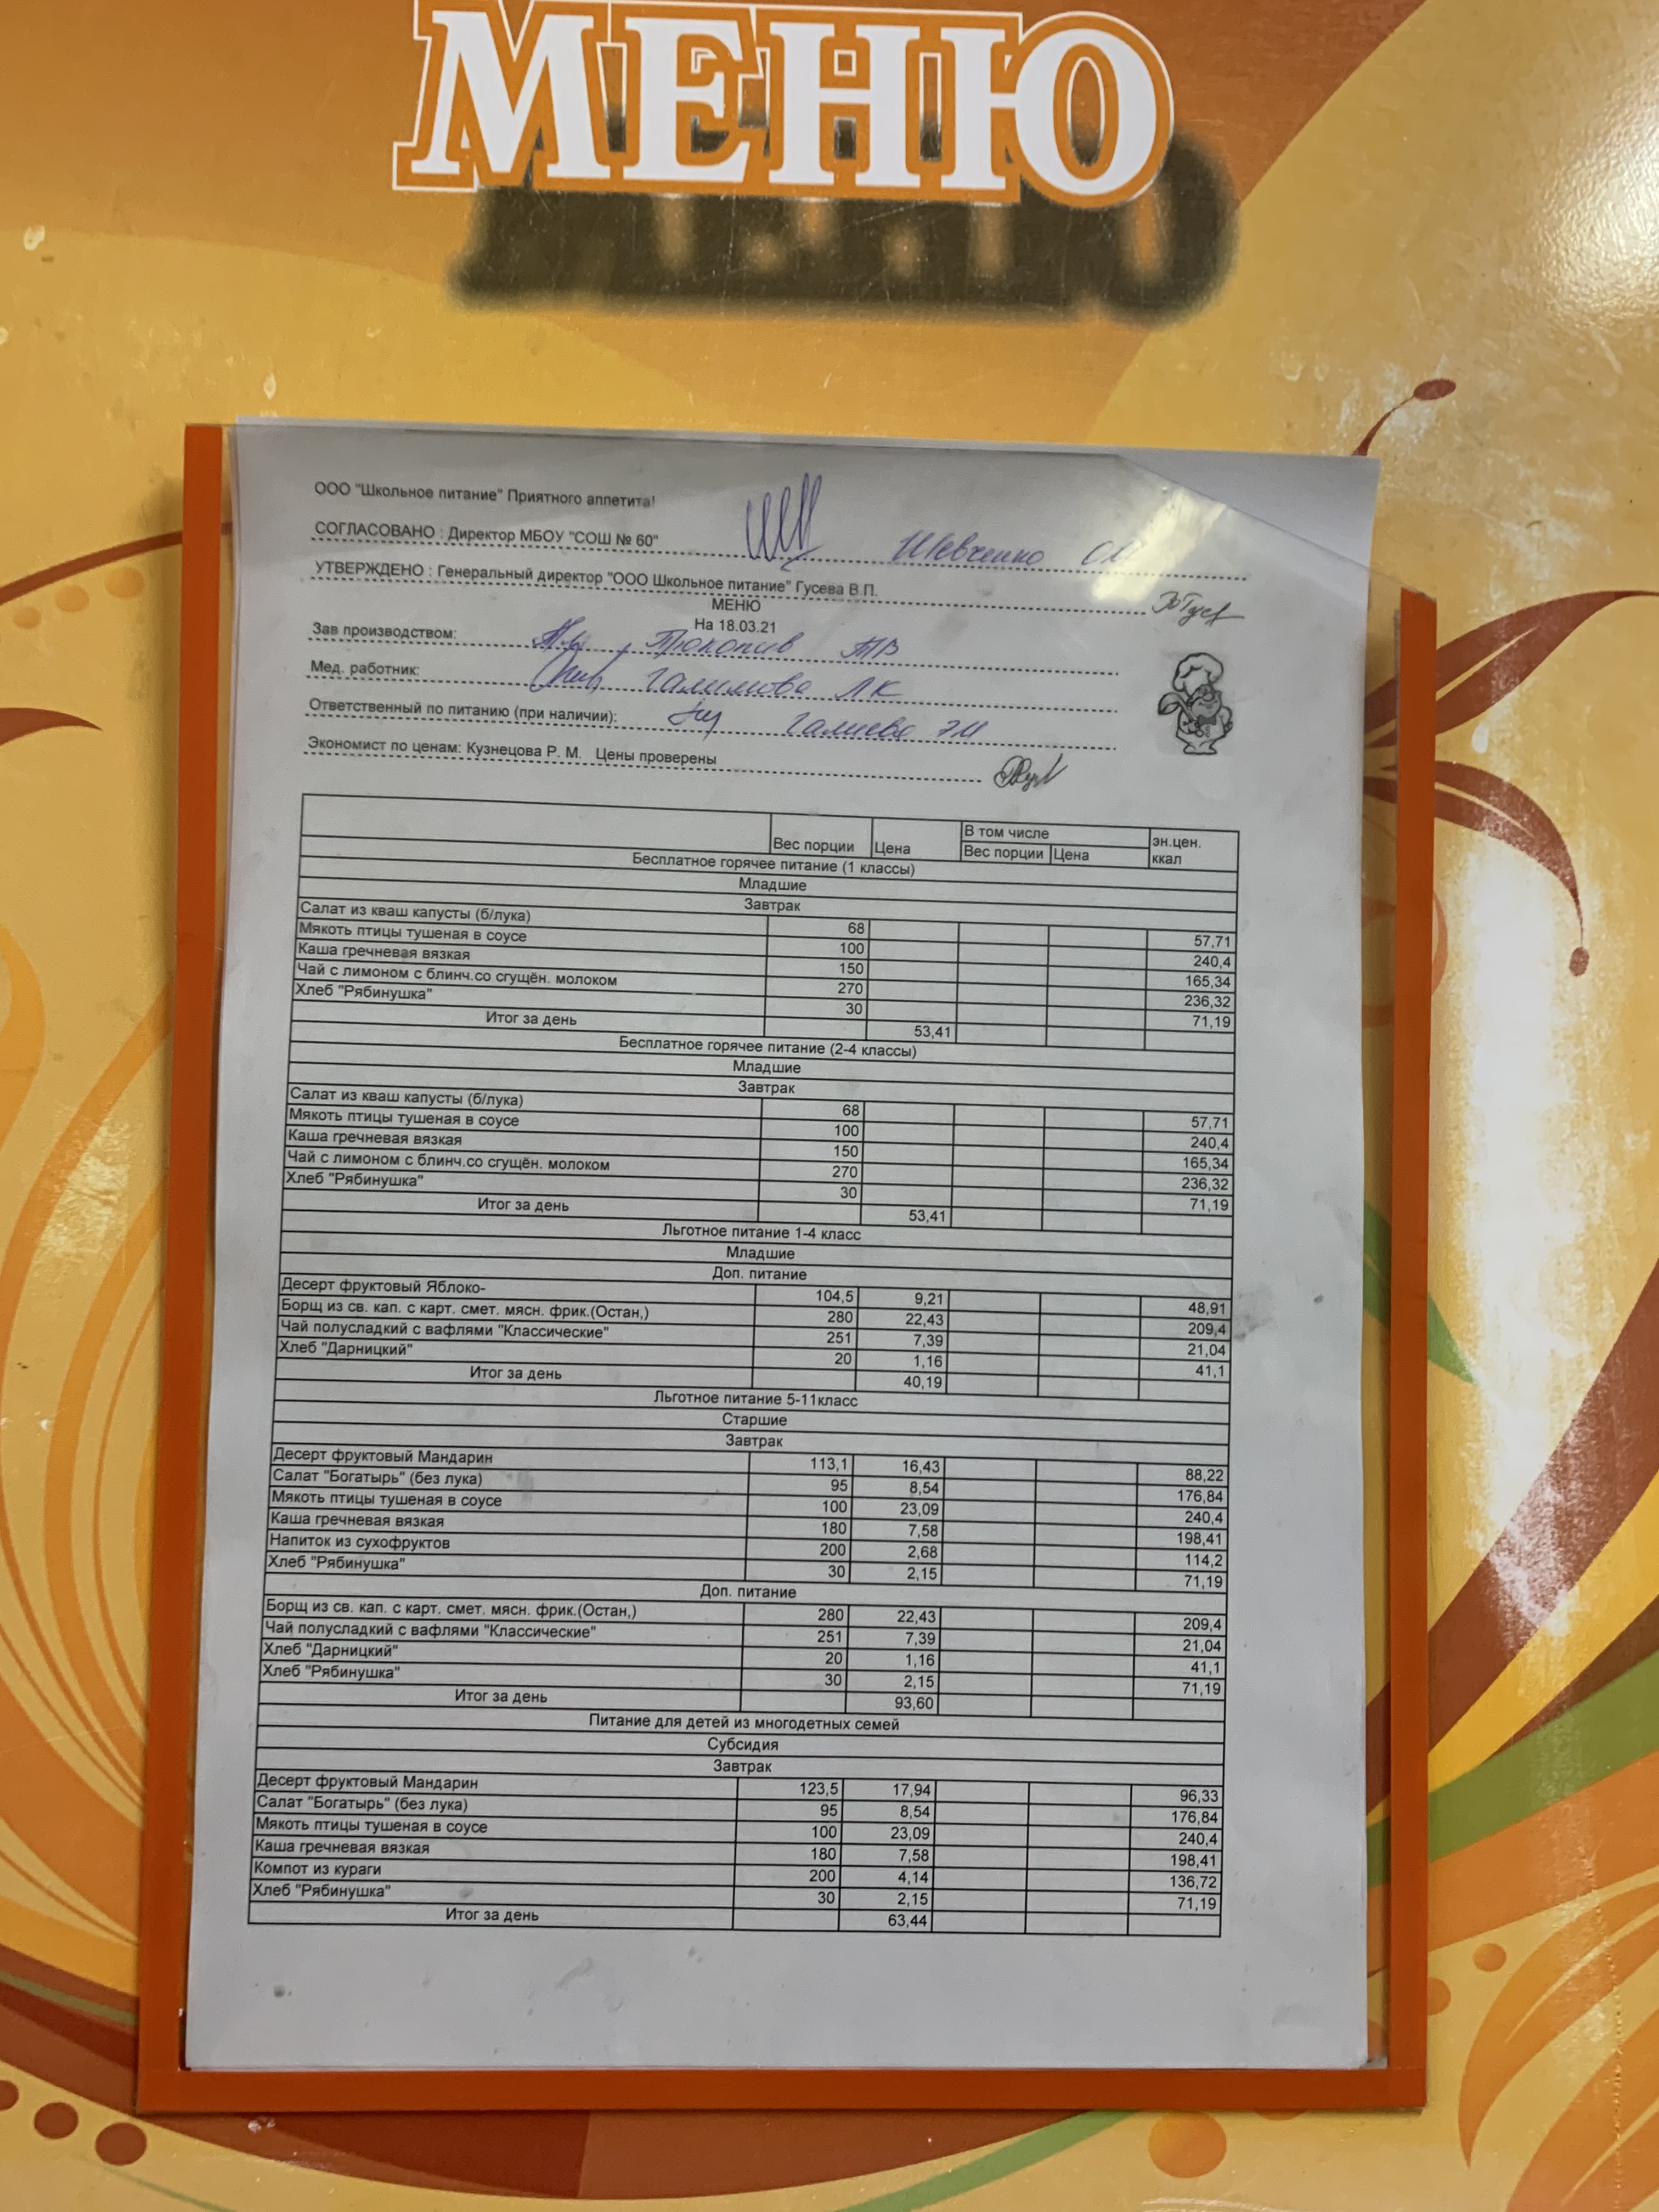 МЕНЮ
ООО "Школьное питание" Приятного аппетита!
СОГЛАСОВАНО : Директор МБОУ "СОШ № 60" Шевченко
УТВЕРЖДЕНО : Генеральный директор "ООО Школьное питание" Гусева В.П.
МЕНЮ
На 18.03.21
Зав производством: ТВ
Мед. работник: Галимова ЛК
Ответственный по питанию (при наличии): Галиева ЭМ
Экономист по ценам: Кузнецова Р. М. Цены проверены
Вес порции Цена В том числе эн.цен. ккал
Вес порции Цена
Бесплатное горячее питание (1 классы)
Младшие
Завтрак
Салат из кваш капусты (б/лука) 68 57,71
Мякоть птицы тушеная в соусе 100 240,4
Каша гречневая вязкая 150 165,34
Чай с лимоном с блинч.со сгущён. молоком 270 236,32
Хлеб "Рябинушка" 30 71,19
Итог за день 53,41
Бесплатное горячее питание (2-4 классы)
Младшие
Завтрак
Салат из кваш капусты (б/лука) 68 57,71
Мякоть птицы тушеная в соусе 100 240,4
Каша гречневая вязкая 150 165,34
Чай с лимоном с блинч.со сгущён. молоком 270 236,32
Хлеб "Рябинушка" 30 71,19
Итог за день 53,41
Льготное питание 1-4 класс
Младшие
Доп. питание
Десерт фруктовый Яблоко- 104,5 9,21 48,91
Борщ из св. кап. с карт. смет. мясн. фрик.(Остан,) 280 22,43 209,4
Чай полусладкий с вафлями "Классические" 251 7,39 21,04
Хлеб "Дарницкий" 20 1,16 41,1
Итог за день 40,19
Льготное питание 5-11класс
Старшие
Завтрак
Десерт фруктовый Мандарин 113,1 16,43 88,22
Салат "Богатырь" (без лука) 95 8,54 176,84
Мякоть птицы тушеная в соусе 100 23,09 240,4
Каша гречневая вязкая 180 7,58 198,41
Напиток из сухофруктов 200 2,68 114,2
Хлеб "Рябинушка" 30 2,15 71,19
Доп. питание
Борщ из св. кап. с карт. смет. мясн. фрик.(Остан,) 280 22,43 209,4
Чай полусладкий с вафлями "Классические" 251 7,39 21,04
Хлеб "Дарницкий" 20 1,16 41,1
Хлеб "Рябинушка" 30 2,15 71,19
Итог за день 93,60
Питание для детей из многодетных семей
Субсидия
Завтрак
Десерт фруктовый Мандарин 123,5 17,94 96,33
Салат "Богатырь" (без лука) 95 8,54 176,84
Мякоть птицы тушеная в соусе 100 23,09 240,4
Каша гречневая вязкая 180 7,58 198,41
Компот из кураги 200 4,14 136,72
Хлеб "Рябинушка" 30 2,15 71,19
Итог за день 63,44